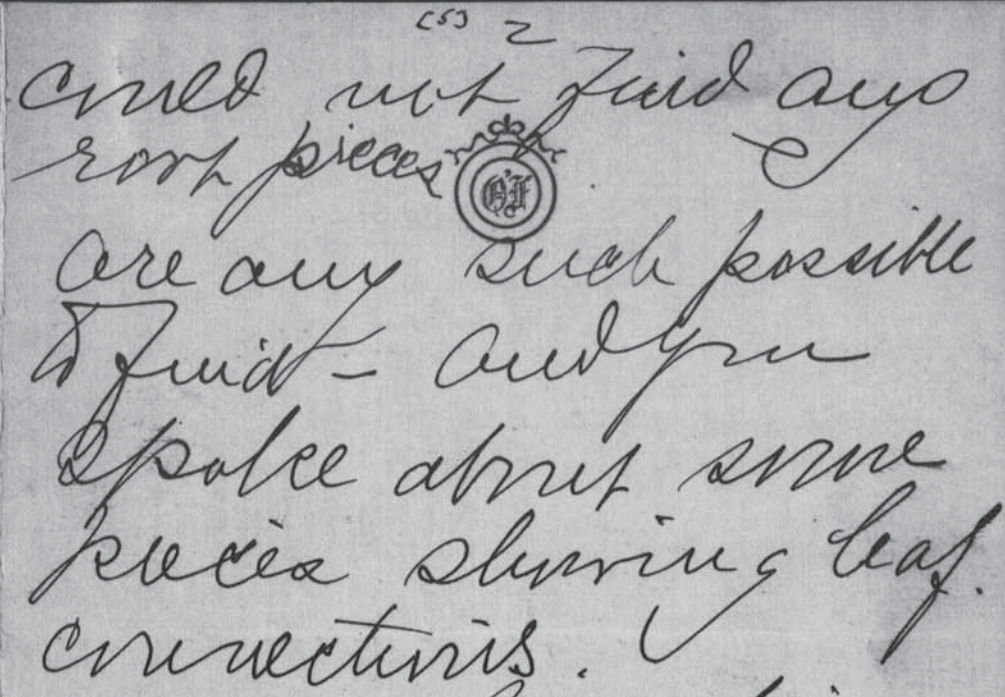 (5) 2
could not find any
root pieces
are any such possible
to find - and you
spoke about some
pieces showing leaf
connections.